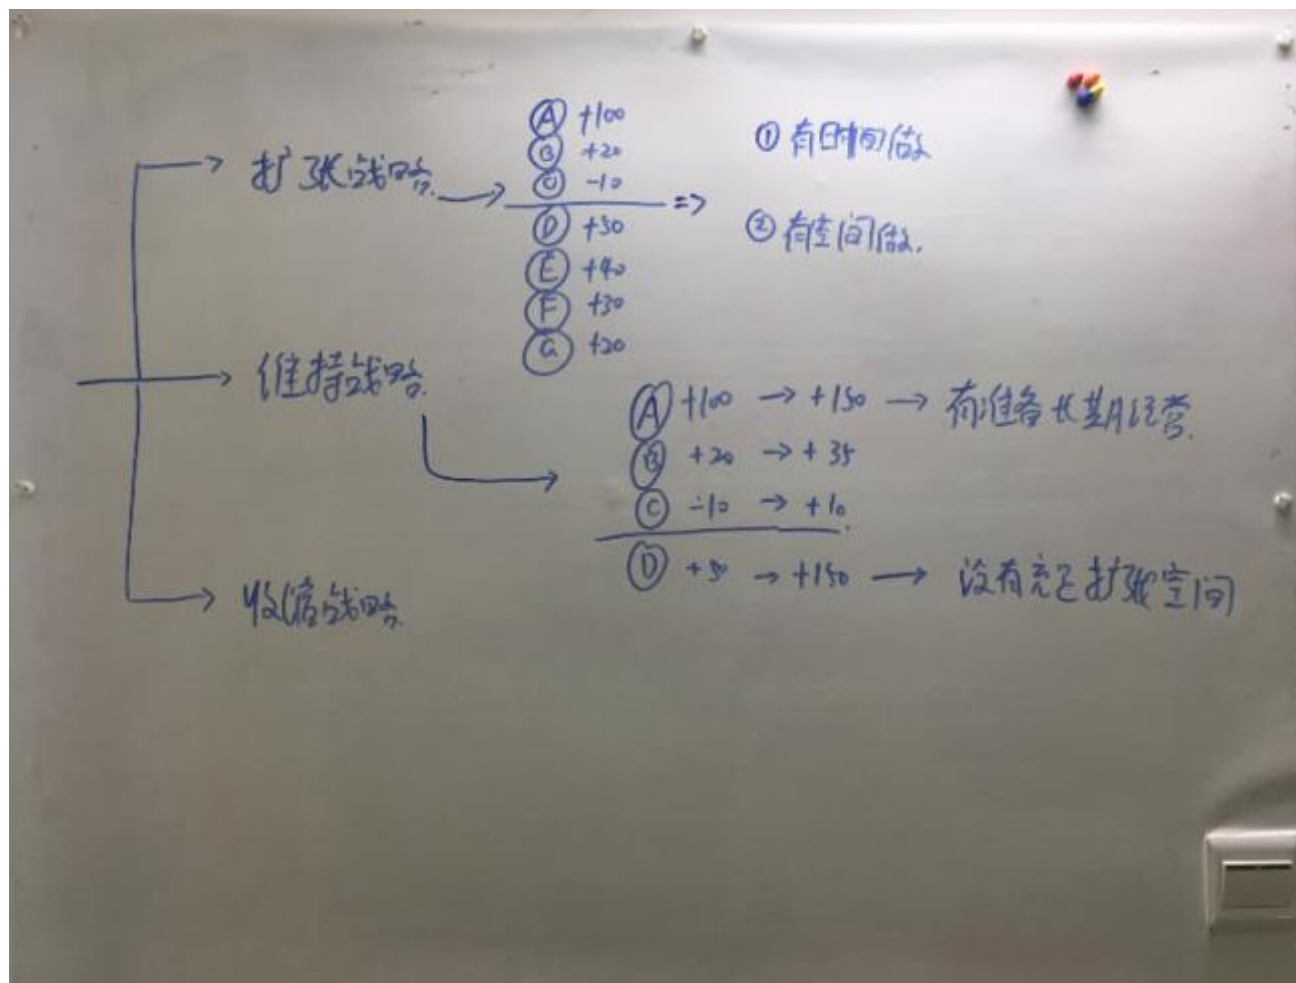 扩张战略.
Ⓐ +100
Ⓑ +20
Ⓒ -10
Ⓓ +50
Ⓔ +40
Ⓕ +30
Ⓖ +20
=>
① 有时间做
② 有空间做.
维持战略.
Ⓐ +100 → +150 → 有准备长期经营.
Ⓑ +20 → +35
Ⓒ -10 → +10.
Ⓓ +50 → +150 → 没有充足扩张空间
收缩战略.